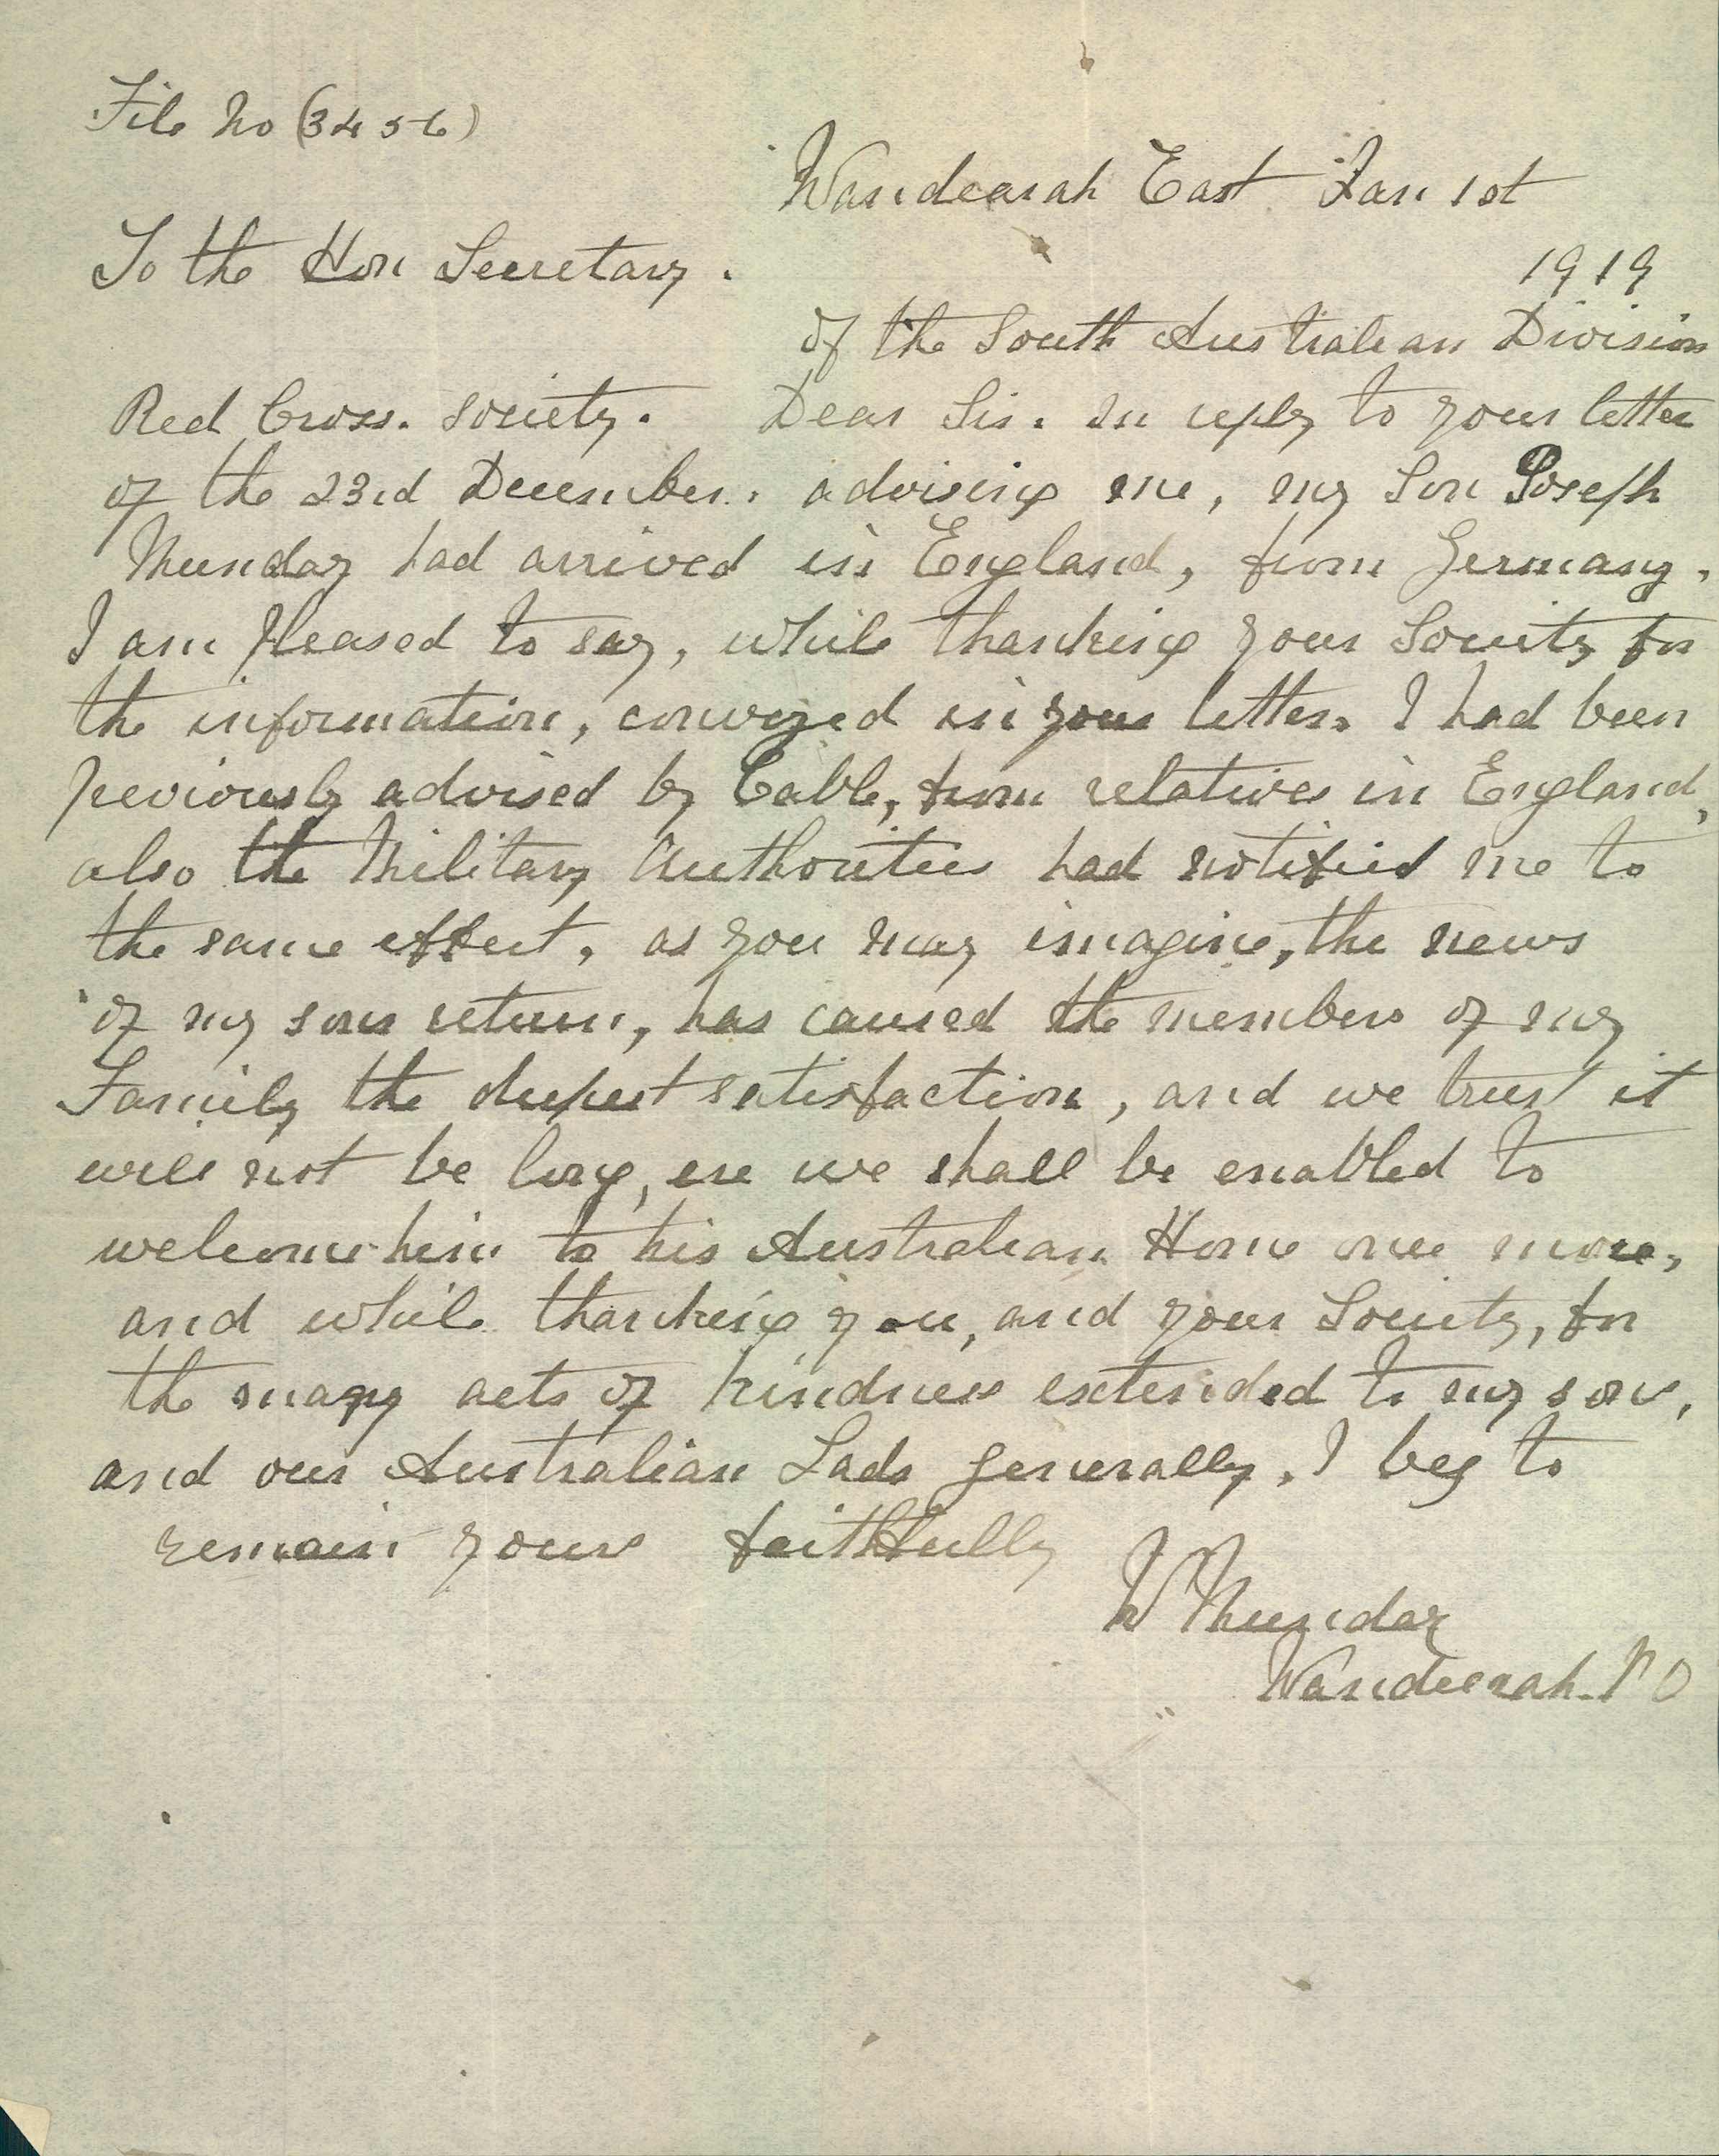 File No (3456)
Wandearah East Jan 1st
1919
To the Hon Secretary.
of the South Australian Division
Red Cross. Society. Dear Sir. In reply to your letter
of the 23rd December. advising me, my Son Joseph
Munday had arrived in England, from Germany.
I am pleased to say, while thanking your Society for
the information, conveyed in your letter. I had been
previously advised by Cable, from relatives in England,
also the Military Authorities had notified me to
the same effect, as you may imagine, the news
of my sons return, has caused the members of my
Family the deepest satisfaction, and we trust it
will not be long, ere we shall be enabled to
welcome him to his Australian Home once more,
and while thanking you, and your Society, for
the many acts of kindness extended to my son,
and our Australian Lads generally, I beg to
remain yours faithfully
W Munday
Wandearah. P O